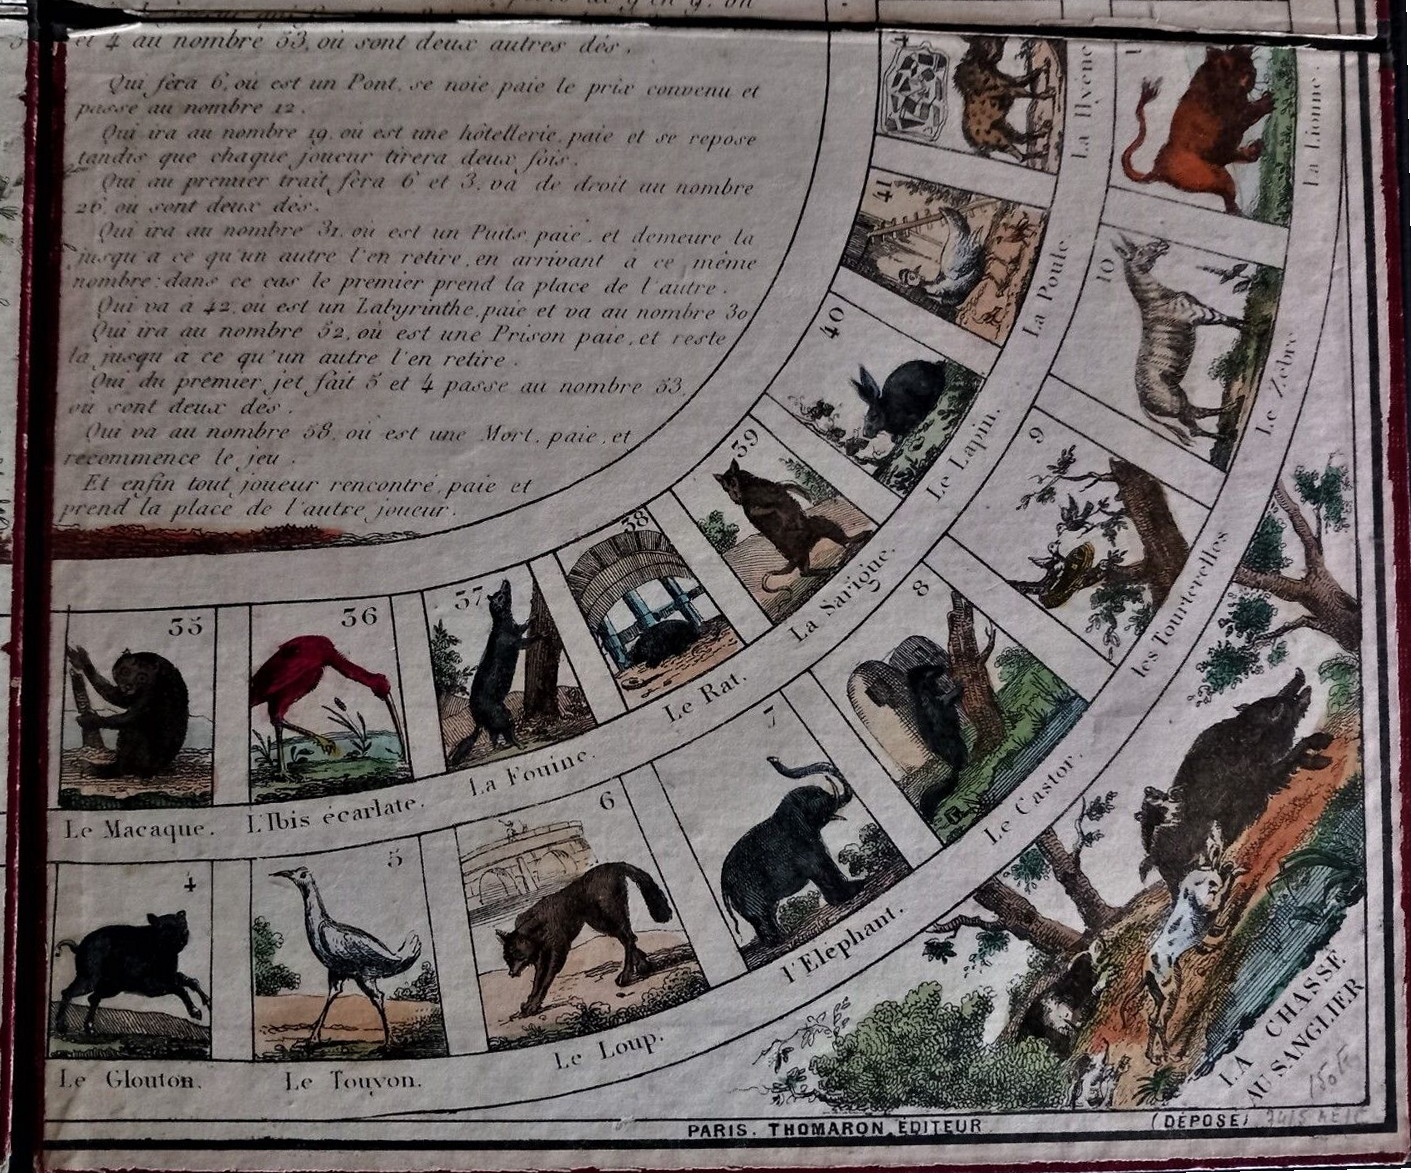 et 4 au nombre 53, où sont deux autres dés.
Qui fera 6, où est un Pont, se noie paie le prix convenu et
passe au nombre 12.
Qui ira au nombre 19, où est une hôtellerie, paie et se repose
tandis que chaque joueur tirera deux fois.
Qui au premier trait fera 6 et 3, va de droit au nombre
26, où sont deux dés.
Qui ira au nombre 31, où est un Puits, paie, et demeure la
jusqu'a ce qu'un autre l'en retire, en arrivant a ce même
nombre: dans ce cas le premier prend la place de l'autre.
Qui va a 42, où est un Labyrinthe, paie et va au nombre 30
Qui ira au nombre 52, où est une Prison paie, et reste
là jusqu'a ce qu'un autre l'en retire.
Qui du premier jet fait 5 et 4 passe au nombre 53,
ou sont deux dés.
Qui va au nombre 58, où est une Mort, paie, et
recommence le jeu.
Et enfin tout joueur rencontré, paie et
prend la place de l'autre joueur.
La Hyène
41
La Poule
40
Le Lapin.
39
La Sarigue.
38
Le Rat.
37
La Fouine.
36
L'Ibis écarlate.
35
Le Macaque.
La Lionne.
10
Le Zèbre
9
les Tourterelles
8
Le Castor.
7
l'Elephant.
6
Le Loup.
5
Le Touyon.
4
Le Glouton.
LA CHASSE
AU SANGLIER
PARIS. THOMARON, ÉDITEUR
(DÉPOSÉ)